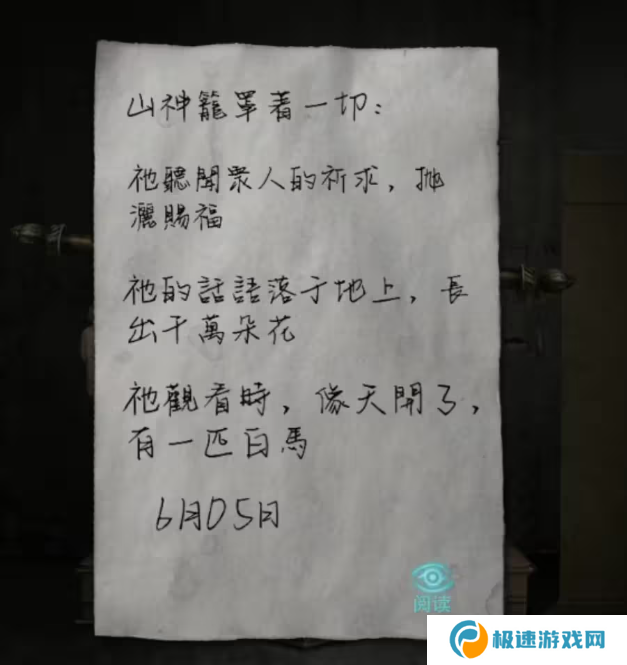 山神籠罩着一切：
祂聽聞眾人的祈求，抛
灑賜福
祂的話語落于地上，長
出千萬朵花
祂觀看時，像天開了，
有一匹白馬
6月05日
阅读
极速游戏网